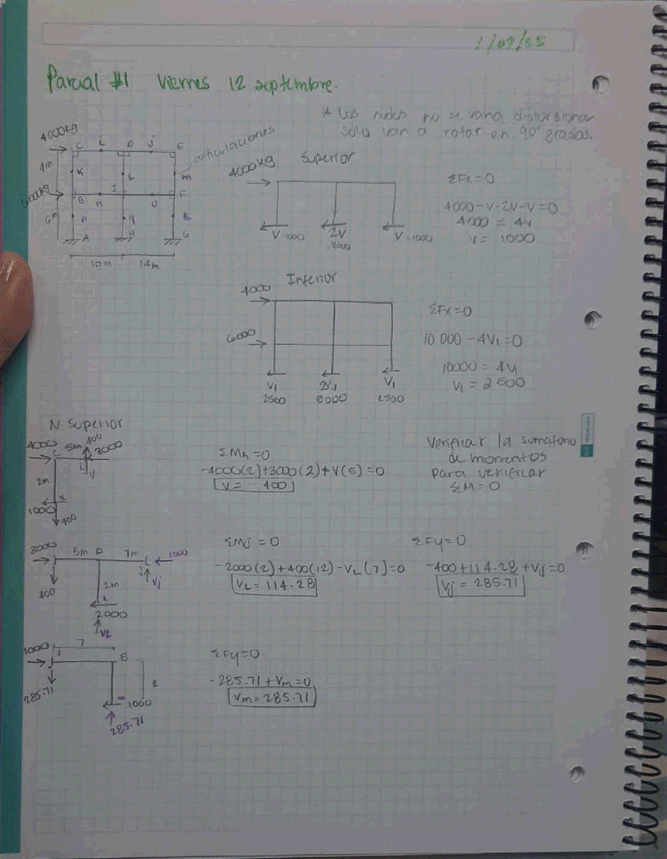 1/09/25
Parcial #1 Viernes 12 septiembre.
* Los nudos no se van a distorsionar
solo van a rotar en 90° grados.
4000 kg
C i D J E
articulaciones
4m
K L m
B n I O F
6m
P q R
A H G
10m 14m
Superior
4000 kg
V=1000 2V 2000 V=1000
ΣFx=0
4000-V-2V-V=0
4000 = 4V
V = 1000
Inferior
4000
6000
V1 2V1 V1
2500 5000 2500
ΣFx=0
10 000 - 4V1=0
10000 = 4V1
V1 = 2500
N Superior
4000 C 5m 400 3000
i V
2m
1000 K
400
ΣMk=0
-4000(2)+3000(2)+V(5)=0
V= 400
Verificar la sumatoria
de momentos
para verificar
ΣM=0
3000 5m D 7m 1000
Vj
400 2m
L
2000
VL
ΣMj = 0
-2000(2)+400(12)-VL(7)=0
VL = 114.28
ΣFy=0
-400+114.28+Vj=0
Vj = 285.71
7
1000 J E
2
285.71 m 1000
285.71
ΣFy=0
-285.71+Vm=0
Vm=285.71